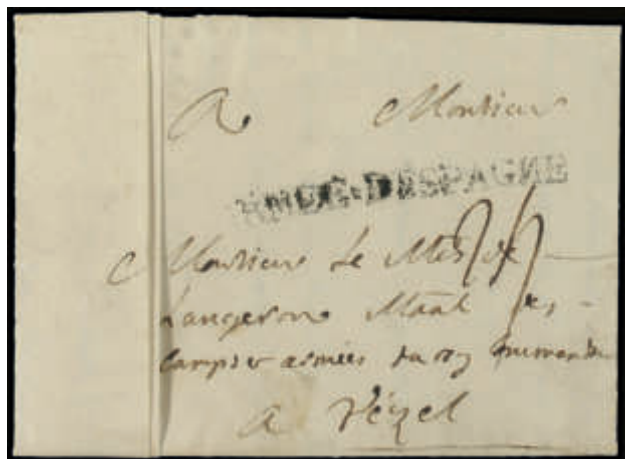 A Monsieur
ARMEE.D'ESPAGNE
Monsieur Le Mis de
Langeron Maal de,
camps et armées du roy
a Vézel